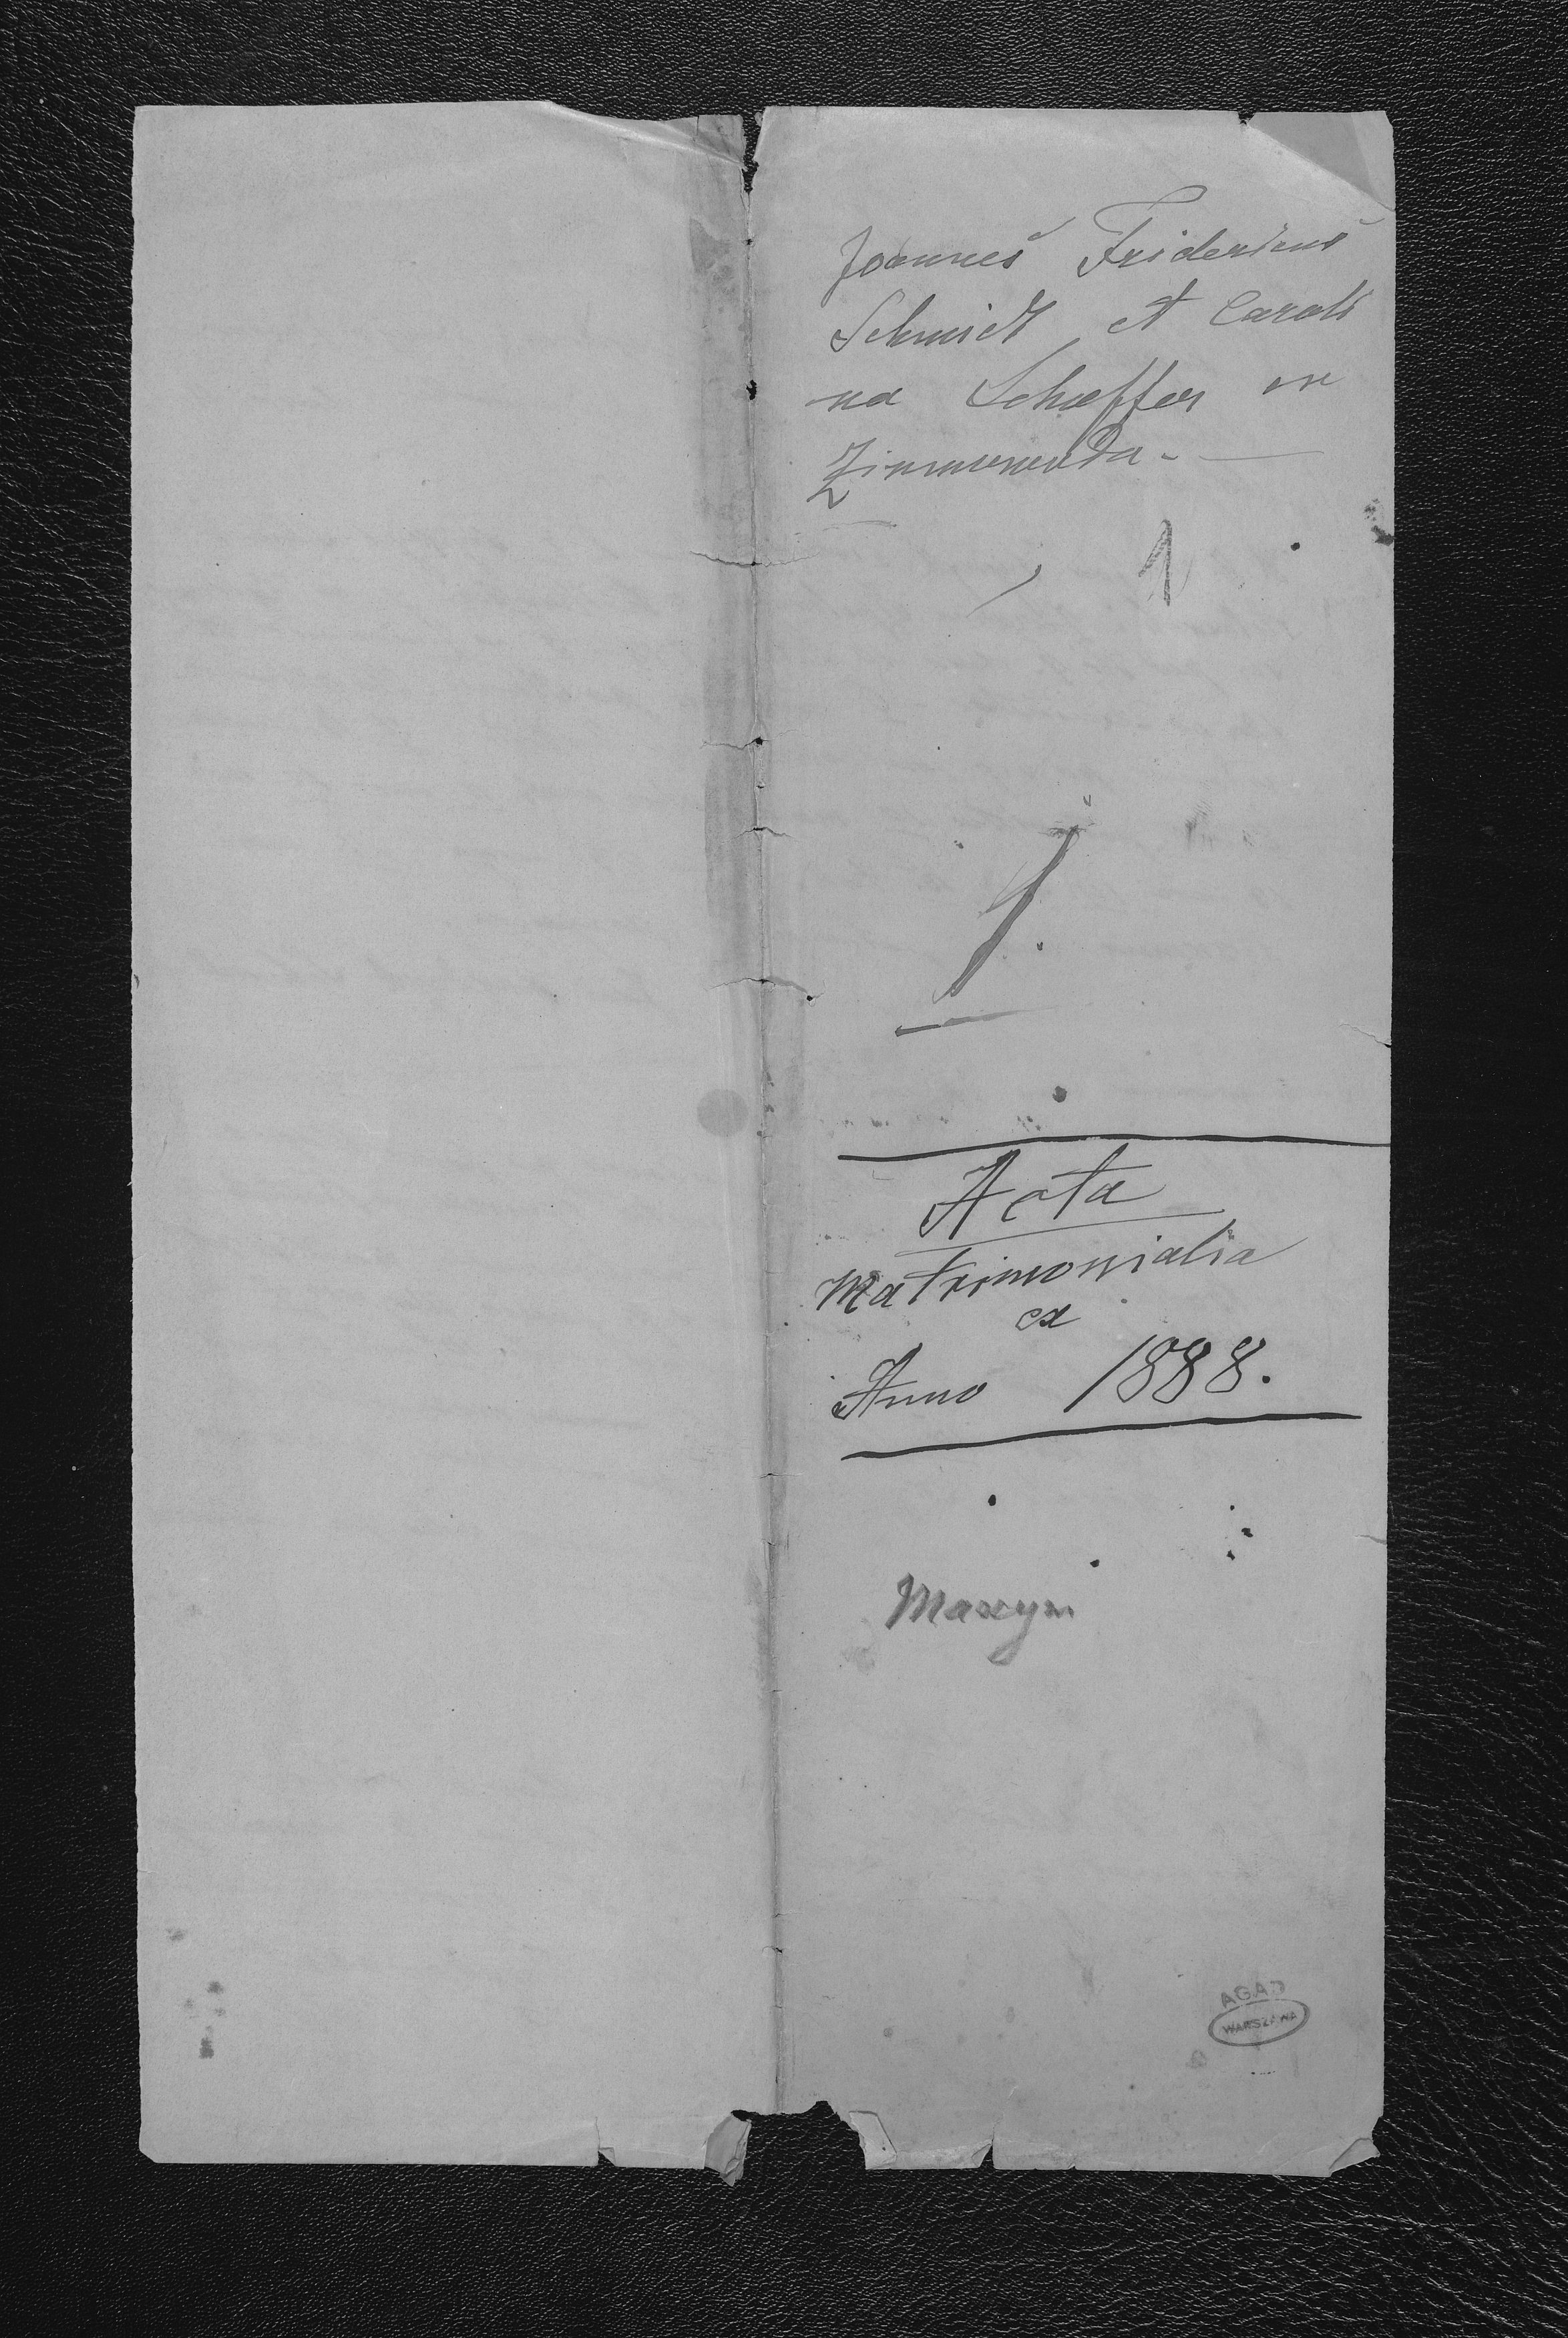 Joannes Fridericus
Schmidt et Caroli
na Schæffer ex
Zimnawoda -
1
1.
Acta
Matrimonialia
ex
Anno 1888.
AGAD
WARSZAWA